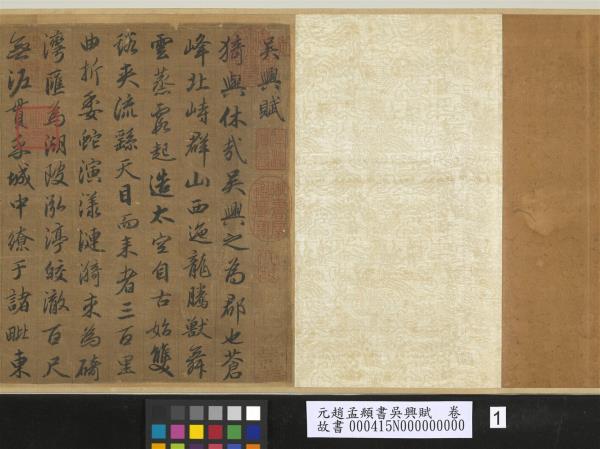 吳興賦
猗與休哉吳興之為郡也蒼
峰北峙群山西迤龍騰獸舞
雲蒸霞起造太空自古始雙
谿夾流繇天目而来者三百里
曲折委蛇演漾漣漪束為碕
灣匯為湖陂泓渟皎澈百尺
無泥貫乎城中繚于諸毗東
元趙孟頫書吳興賦 卷
故書 000415N000000000
1